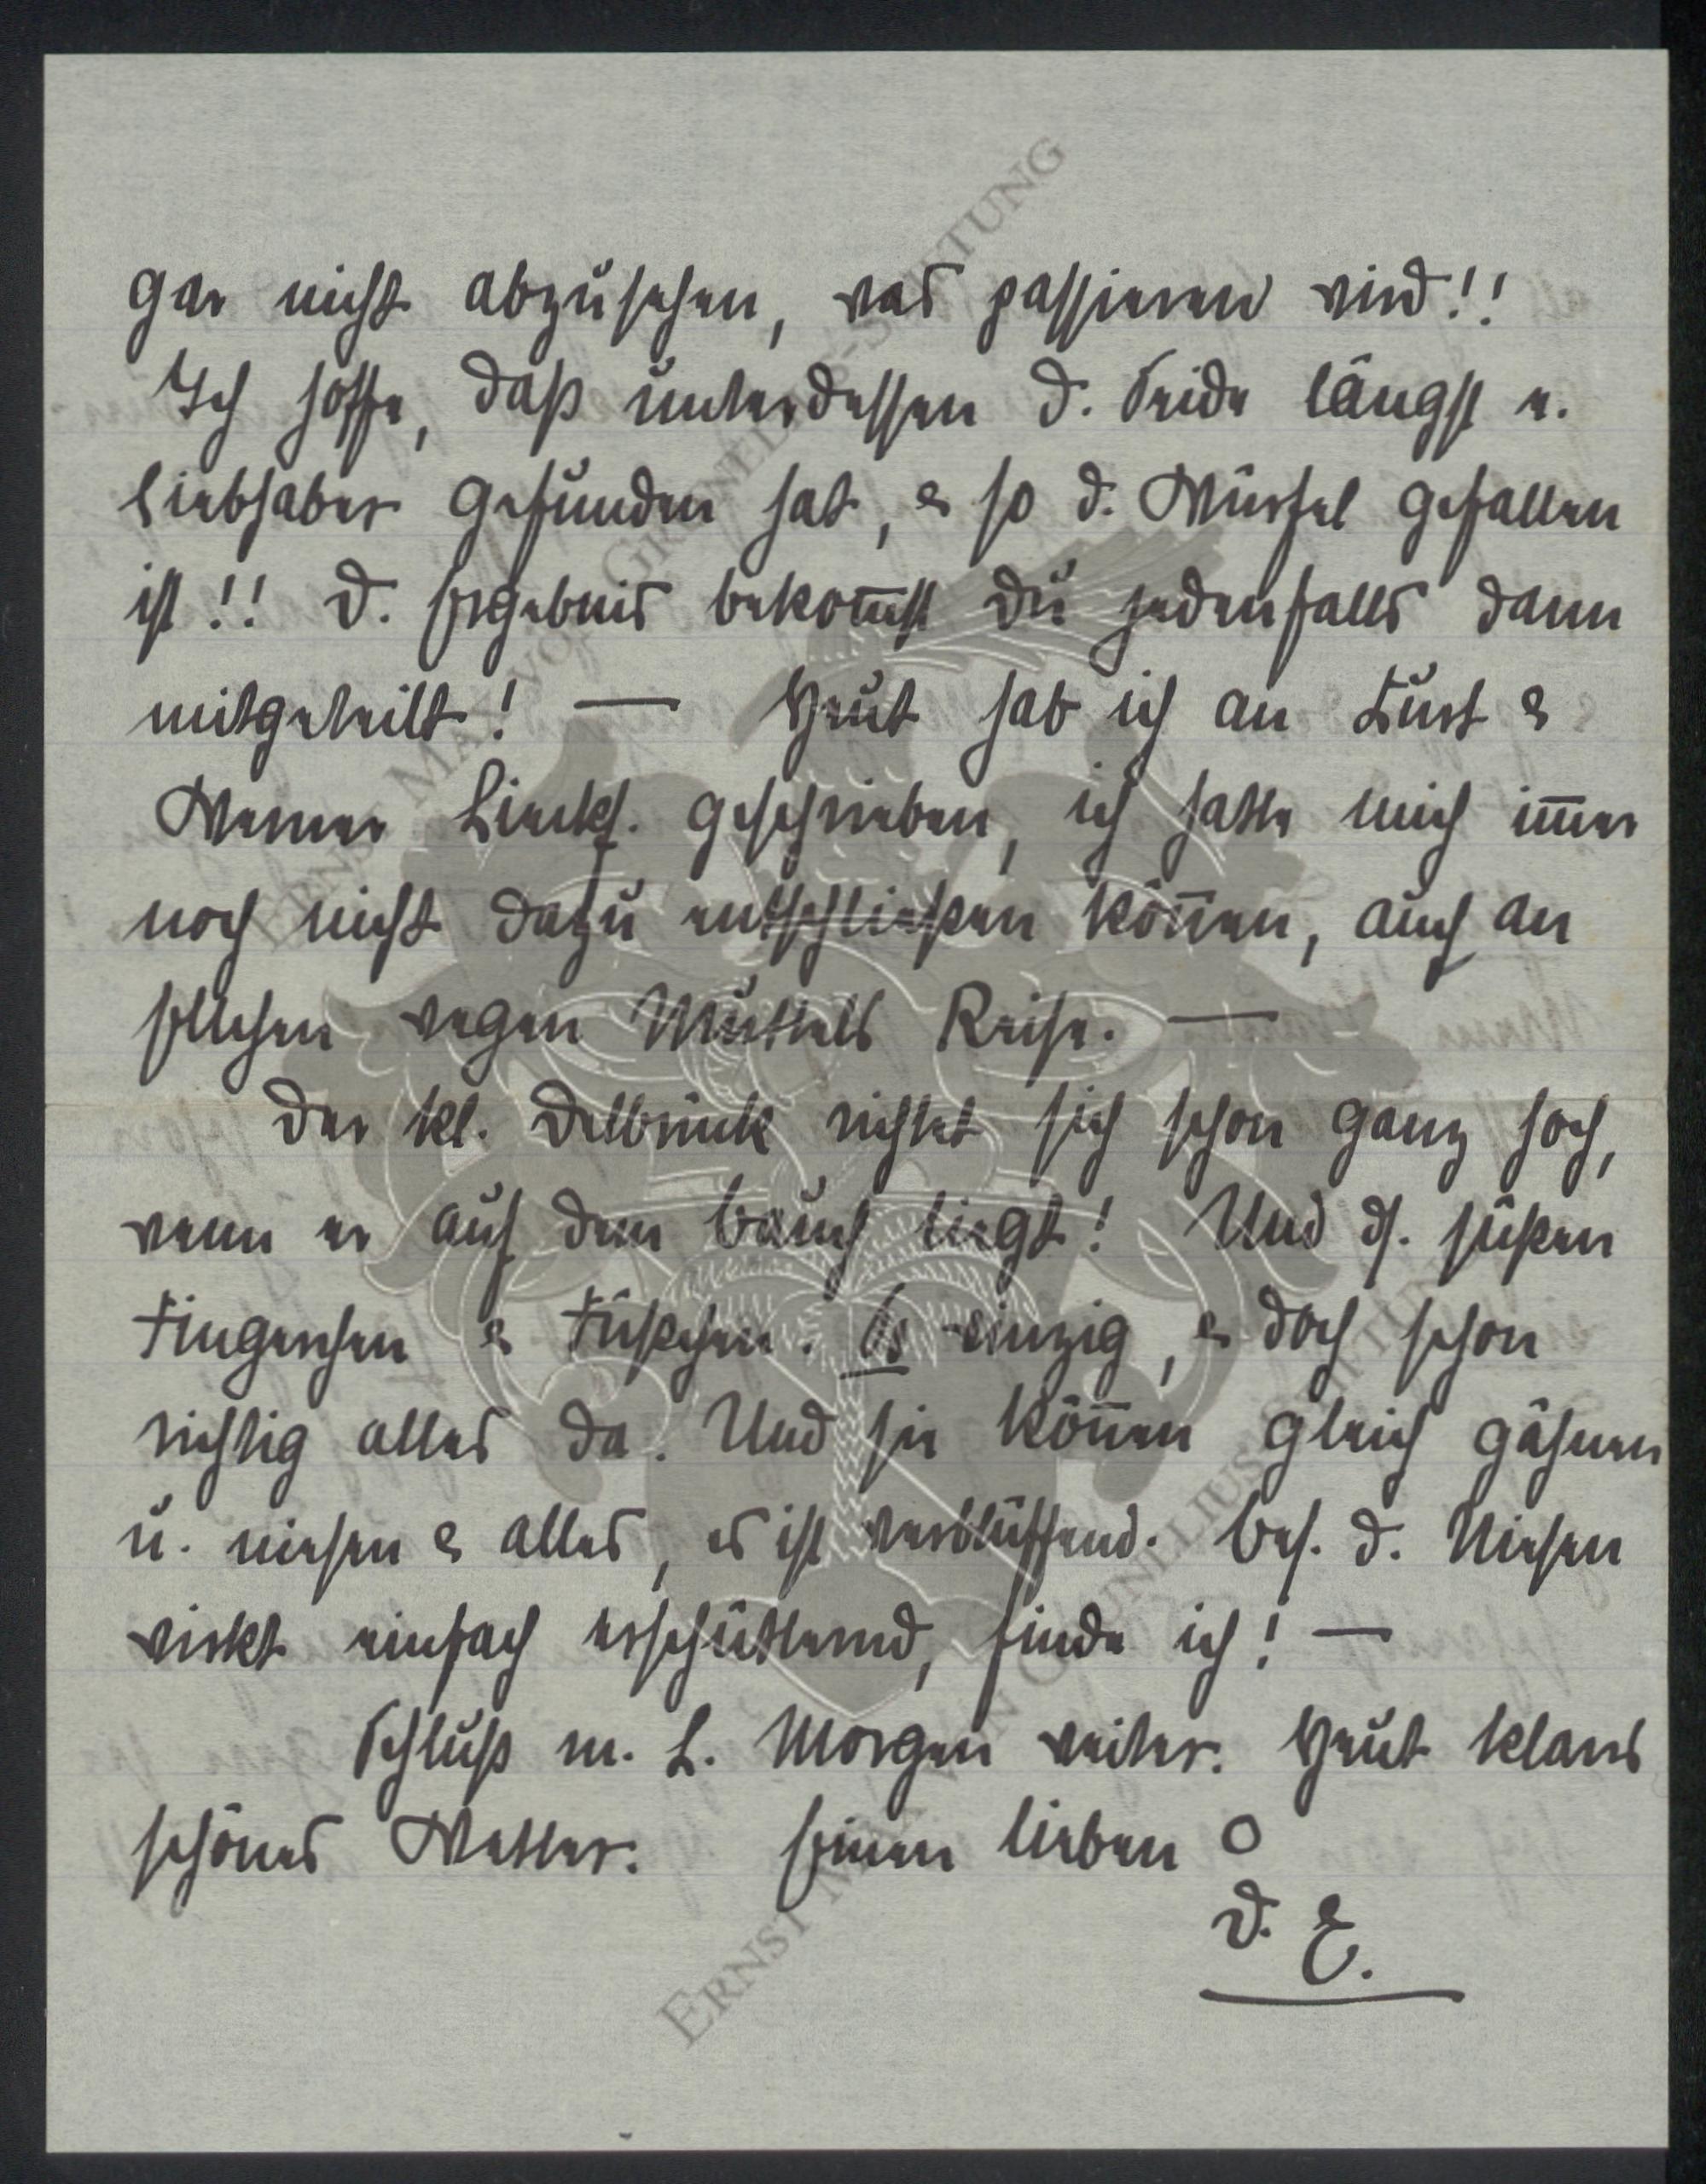 gar nicht abzusehen, was passieren wird!!
Ich hoffe, daß unterdessen d. Seide längst e.
Liebhaber gefunden hat, & so d. Würfel gefallen
ist!! D. Ergebnis bekom̄st Du jedenfalls dann
mitgeteilt! — Heut hab ich an Kurt &
Werner geschrieben, ich hatte mich im̄er
noch nicht dazu entschließen kön̄en, auch an
wegen Muttels Reise. —
Der kl. Delbrück richtet sich schon ganz hoch,
wenn er auf dem Bauch liegt! Und d. süßen
Fingerchen & Füßchen. So einzig, & doch schon
richtig alles da. Und sie kön̄en gleich gähnen
u. niesen & alles, es ist verblüffend. Bes. d. Niesen
wirkt einfach erschütternd, finde ich! —
Schluß m. L. Morgen weiter. Heut klares
schönes Wetter. Einen lieben O
D. E.
ERNST MAX VON GRUNELIUS-STIFTUNG
ERNST MAX VON GRUNELIUS-STIFTUNG